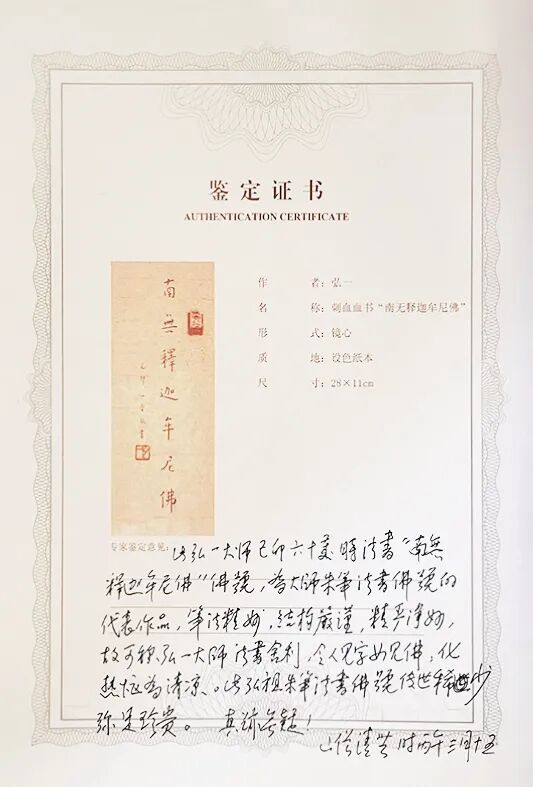 鉴定证书
AUTHENTICATION CERTIFICATE
作 者：弘一
名 称：刺血血书“南无释迦牟尼佛”
形 式：镜心
质 地：设色纸本
尺 寸：28×11cm
南無釋迦牟尼佛
专家鉴定意见：此弘一大师己卯六十岁時法書“南無
釋迦牟尼佛”佛號，為大師朱筆法書佛號的
代表作品，筆法精妙，结构嚴谨，精严净妙，
故可称弘一大師法書舍利，令人见字如见佛，化
热恼为清凉。此弘祖朱筆法書佛號传世稀少
弥足珍贵。 真迹无疑！
時丙午三月十五